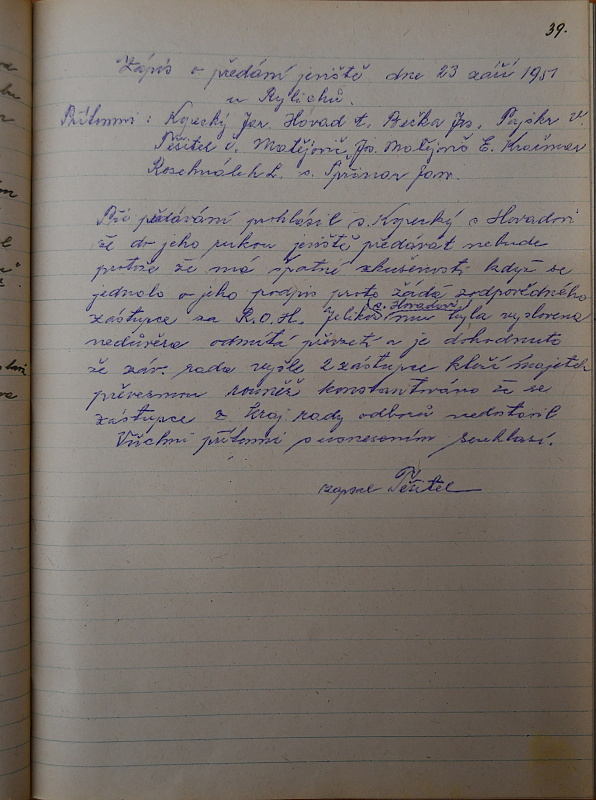 39.
Zápis o předání jeviště dne 23 září 1951
u Rylichů.
Přítomni: Kopecký Jar. Hovad A. Bečka Jos. Pajskr V.
Těšitel V. Matějovič Jos. Matějovič E. Kračmar
Rosehnálek L. s. Spižnar Jan.
Při předávání prohlásil s. Kopecký s Hovadovi
že do jeho rukou jeviště předávat nebude
protože že má špatné zkušenosti když se
jednalo o jeho podpis proto žádá zodpovědného
(s. Hovadovi)
zástupce za R.O.H. Jelikož mu byla vyslovena
nedůvěra odmítá převzetí a je dohodnuto
že záv. rada vyšle 2 zástupce kteří majetek
převezmou rovněž konstantováno že se
zástupce z kraj rady odborů nedostavil
Všichni přítomni s usnesením souhlasí.
zapsal Těšitel